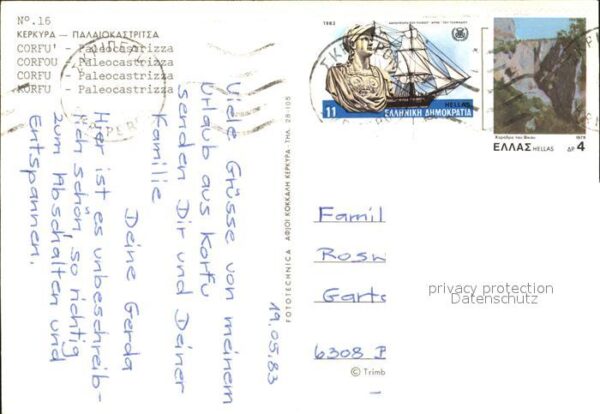 Nº.16
ΚΕΡΚΥΡΑ — ΠΑΛΑΙΟΚΑΣΤΡΙΤΣΑ
CORFU' - Paleocastrizza
CORFOU - Paleocastrizza
CORFU - Paleocastrizza
KORFU - Paleocastrizza
19.05.83
Viele Grüsse von meinem
Urlaub aus Korfu
senden Dir und Deiner
Familie
Deine Gerda
Hier ist es unbeschreib-
lich schön, so richtig
zum Abschalten und
Entspannen.
FOTOTECHNICA ΑΦΙΟΙ ΚΟΚΚΑΛΗ ΚΕΡΚΥΡΑ - ΤΗΛ. 28-108
1983
11
HELLAS
ΕΛΛΗΝΙΚΗ ΔΗΜΟΚΡΑΤΙΑ
Χαράδρα του Βίκου
1979
ΕΛΛΑΣ HELLAS
ΔΡ 4
Famil
Rosw
Garts
6308
privacy protection
Datenschutz
© Trimb